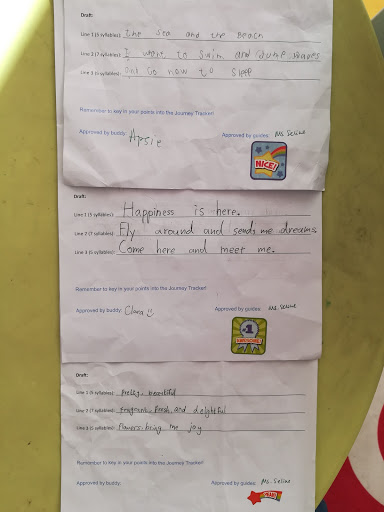 Draft:
Line 1 (5 syllables): the sea and the beach
Line 2 (7 syllables): I want to swim and jump waves
Line 3 (5 syllables): and Go now to sleep
Remember to key in your points into the Journey Tracker!
Approved by buddy: Apsie
Approved by guides: Ms. Seline
NICE!
Draft:
Line 1 (5 syllables): Happiness is here.
Line 2 (7 syllables): Fly around and sends me dreams.
Line 3 (5 syllables): Come here and meet me.
Remember to key in your points into the Journey Tracker!
Approved by buddy: Clara
Approved by guides: Ms. Seline
#1
Draft:
Line 1 (5 syllables): Pretty, beautiful
Line 2 (7 syllables): Fragrant, fresh, and delightful
Line 3 (5 syllables): Flowers bring me joy
Remember to key in your points into the Journey Tracker!
Approved by buddy:
Approved by guides: Ms. Seline